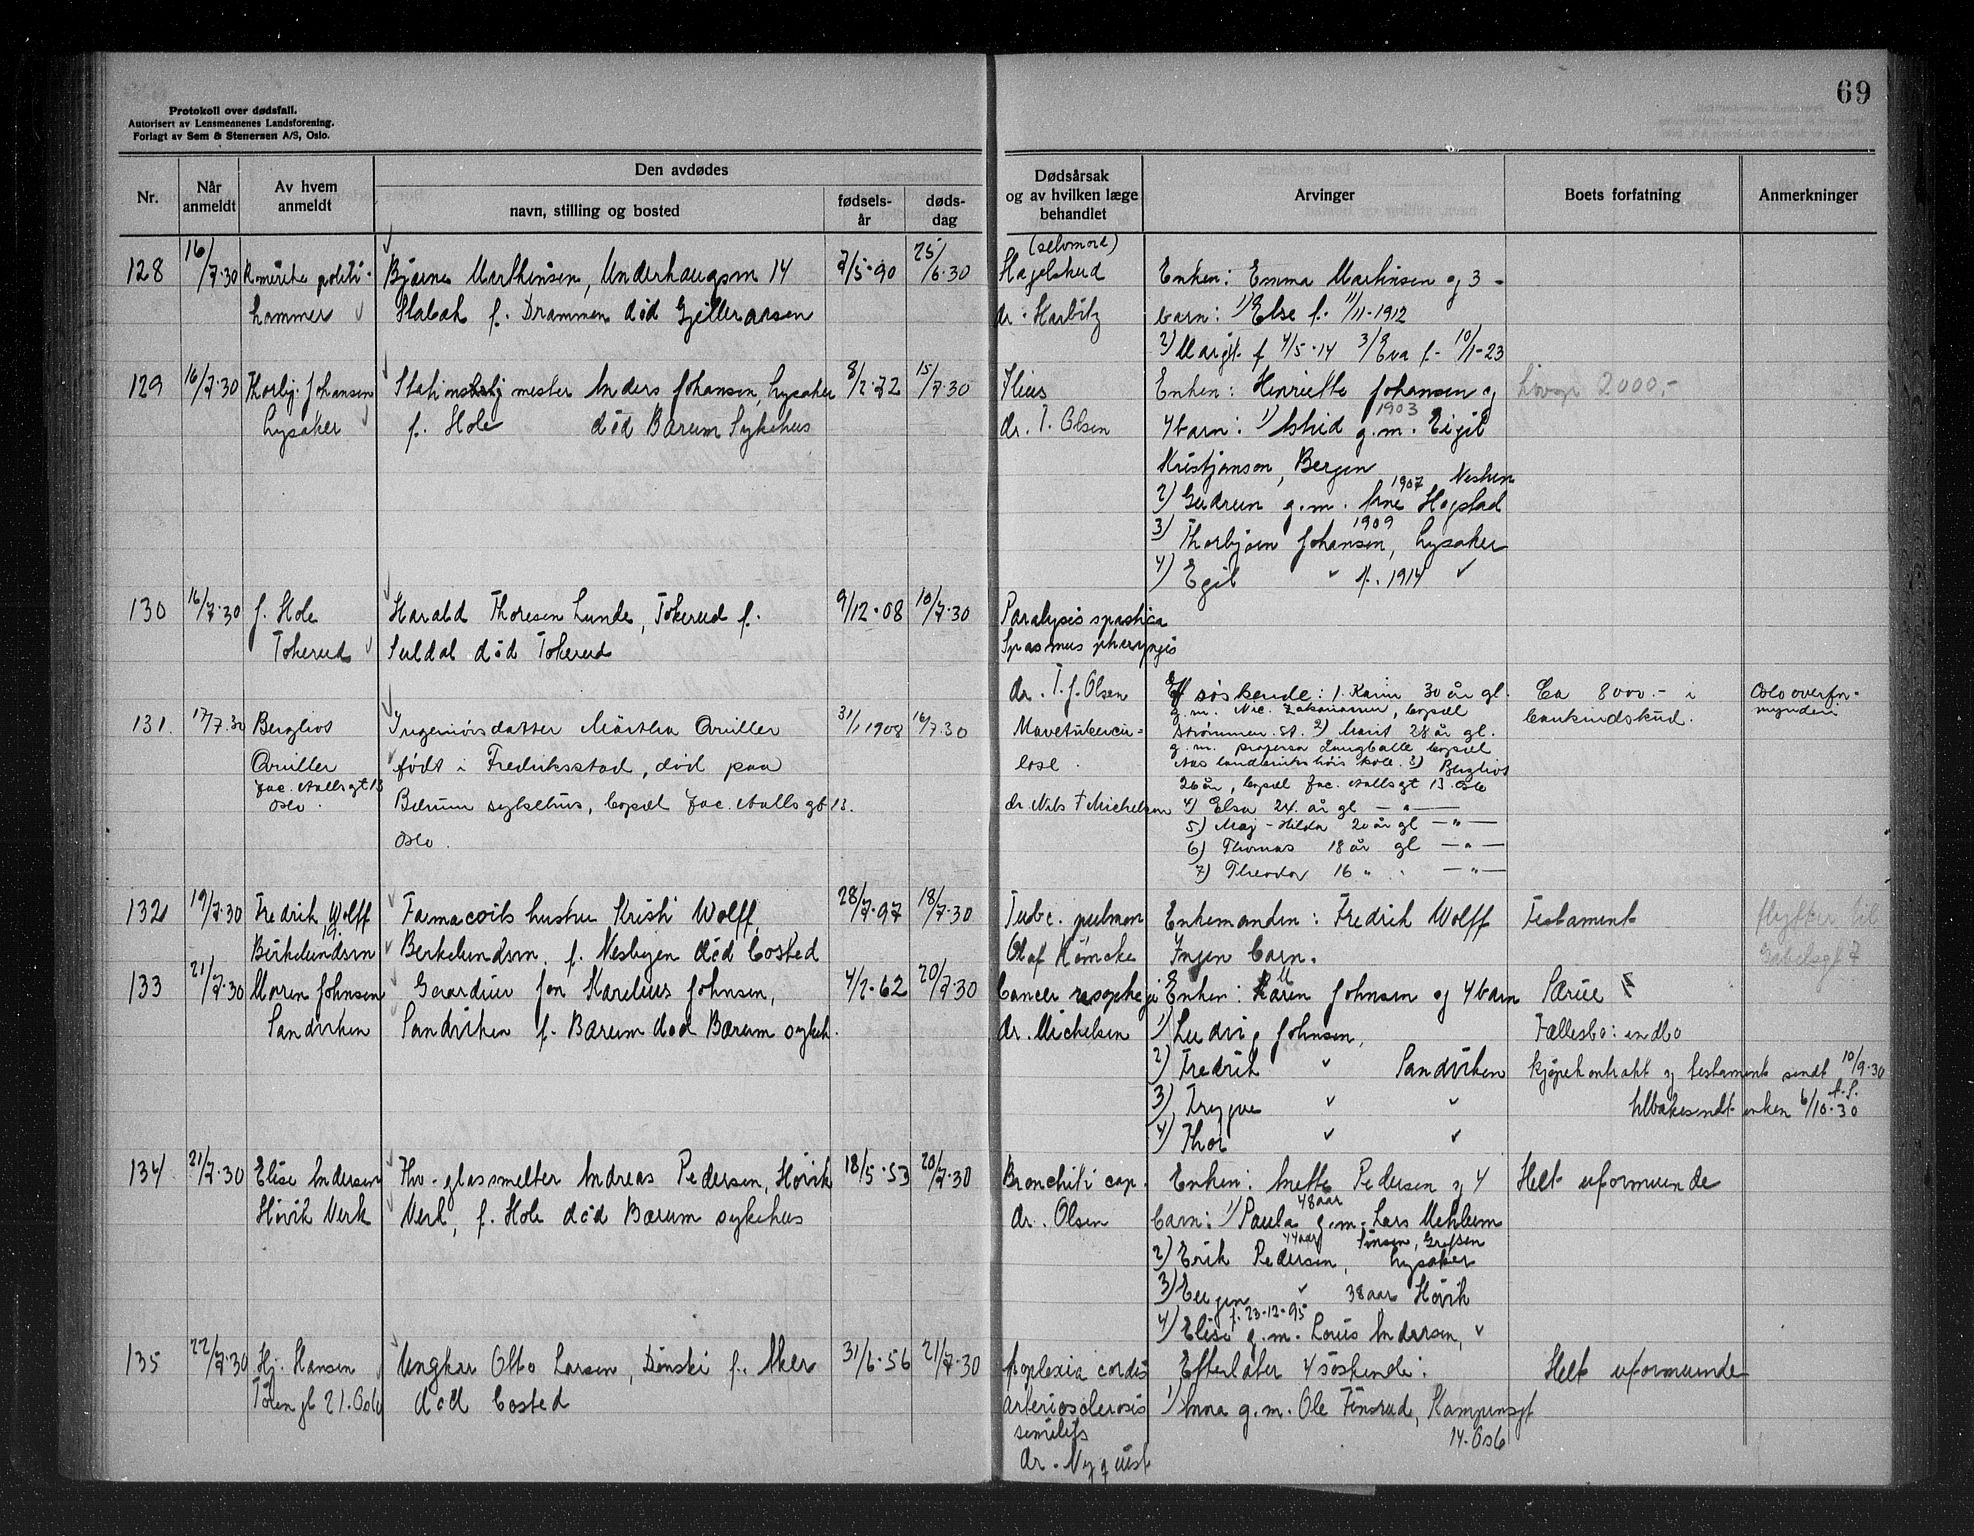 69
Protokoll over dødsfall.
Autorisert av Lensmennenes Landsforening.
Forlagt av Sem & Stenersen A/S, Oslo.
Nr.
Når anmeldt
Av hvem anmeldt
Den avdødes
navn, stilling og bosted
fødselsår
dødsdag
Dødsårsak og av hvilken læge behandlet
Arvinger
Boets forfatning
Anmerkninger
128 16/7.30 Romerike politi- Bjarne Marthinsen, Underhaugsvn 14 7/5.90 25/6.30 (selvmord)
Hagelskud Enken: Emma Martinsen og 3
kammer Stabæk f. Drammen død Gjelleraasen dr. Harbitz barn: 1) Else f. 11/11-1912
2) Margit f 4/5.14 3) Eva f. 10/1-23
129 16/7.30 Thorbj. Johansen Stationsmester Anders Johansen, Lysaker 8/2.72 15/7.30 Ileus Enken: Henriette Johansen og 2000,-
Lysaker f. Hole død Bærum Sykehus dr. T. Olsen 4 barn: 1) Astrid 1903 g.m. Eigil
Kristjanson, Bergen
2) Gudrun 1907 g.m. Arne Hogstad Neskun
3) Thorbjørn Johansen, 1909 Lysaker
4) Egil " f. 1914 "
130 16/7.30 f. Hole Harald Thoresen Lunde, Tokerud f. 9/12.08 10/7.30 Paralysis spastica
Tokerud Suldal død Tokerud Spasmus pharyngis
dr. T. J. Olsen
131. 17/7.30 Bergliot Ingeniørsdatter Märtha Qviller 31/1 1908 16/7.30 Mavetubercu-
Qviller født i Fredriksstad, død paa lose.
Jac. Aallsgt 13 Bærum sykehus, bopæl Jac. Aalls gt 13. dr Nils Michelsen
Oslo. Oslo.
7 søskende: 1. Karin 30 år gl.
g.m. Nic. Zakariassen, bopæl
Strømmen st. 2) Marit 28 år gl.
g.m. professor Langballe bopæl
Aas landbrukshøiskole. 3) Bergliot
26 år, bopæl Jac. Aallsgt 13. Oslo
4) Elsa 24. år gl — " —
5) May-Hilda 20 år gl — " —
6) Thomas 18 år gl — " —
7) Theodor 16 " " — " —
Ca 8000.- i
bankindskud.
Oslo overfor-
mynderi
132 19/7.30 Fredrik Wolff Farmacøits hustru Kristi Wolff, 28/7.97 18/7.30 Tubc. pulmon Enkemanden: Fredrik Wolff Testament flytter til
Birkelundsvn 19. Berkelundsvn. f. Nesbyen død bosted Olaf Römcke Ingen barn. Gabelsgt 7
133 21/7.30 Maren Johnsen Gaardeier Jon Karelius Johnsen, 4/2.62 20/7.30 Cancer Enken: Maren Johnsen og 4 barn Særeie
Sandviken Sandviken f. Bærum død Bærum sykeh. dr. Michelsen 1) Ludvig Johnsen, Fællesbo: endbo
2) Fredrik " Sandviken kjøpekontrakt og testament sendt 10/9.30
3) Trygve " " tilbakesendt enken 6/10.30
4) Thor " "
134 21/7.30 Elise Andersen Fhv. glassmelter Andreas Pedersen, Høvik 18/5.53 20/7.30 Bronchiti cap. Enken: Mette Pedersen og 4 Helt uformuende
Høvik Verk Verk, f. Hole død Bærum sykehus dr. Olsen barn: 1) Paula 48 aar g.m. Lars Mehlum
Sinsen, Grefsen
2) Erik Pedersen, 44 aar Lysaker
3) Eugen " 38 aar Høvik
4) Elise f. 23-12-95 g.m. Louis Andersen, "
135 22/7.30 Hj. Hansen Ungkar Otto Larsen, Dønski f. Aker 31/6.56 21/7.30 Apoplexia cordis Efterlater 4 søskende: Helt uformuende
Tøiengt 21. Oslo død bosted arteriosclerosis 1) Anna g.m. Ole Finsrud, Kampensgt
senilits 14. Oslo
dr. Nyquist